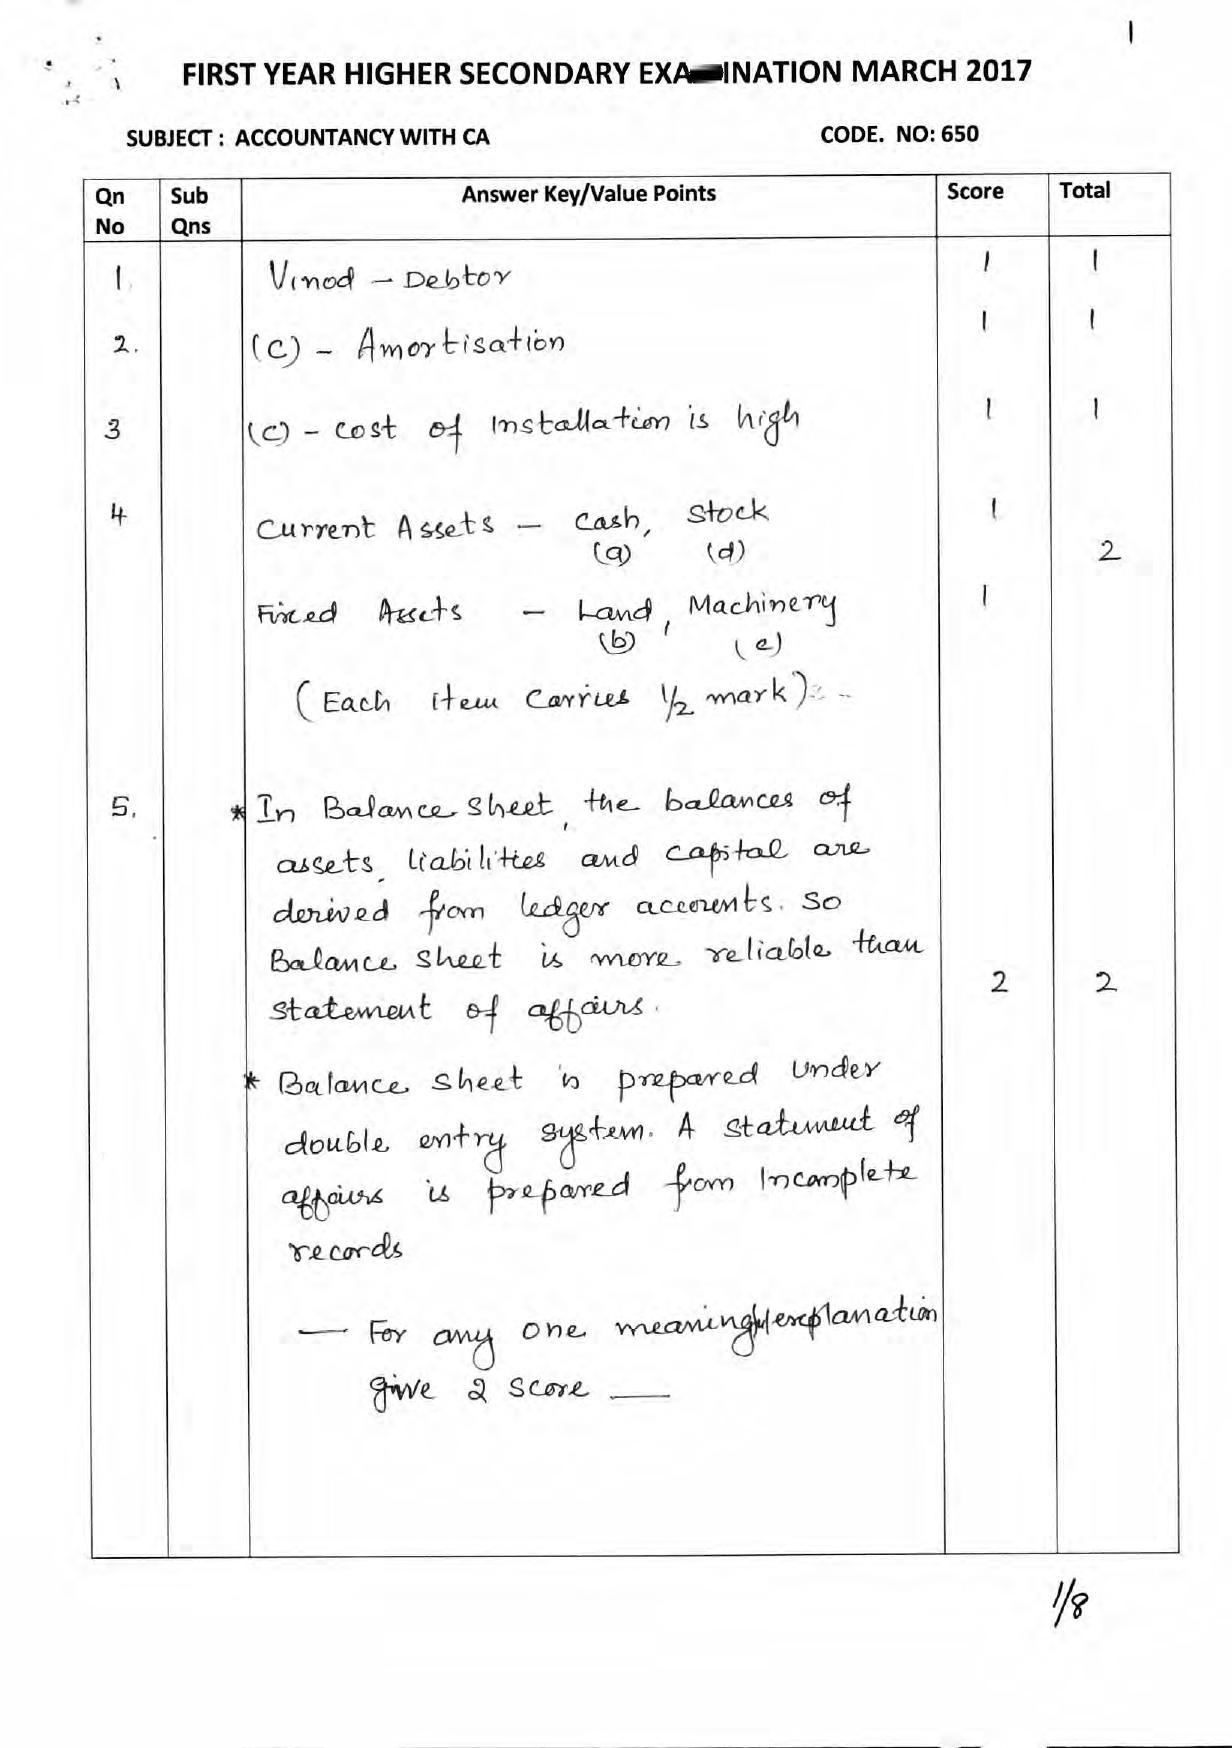 1
FIRST YEAR HIGHER SECONDARY EXA INATION MARCH 2017
SUBJECT : ACCOUNTANCY WITH CA CODE. NO: 650
Qn No Sub Qns Answer Key/Value Points Score Total
1. Vinod – Debtor 1 1
2. (C) – Amortisation 1 1
3 (C) – Cost of Installation is high 1 1
4 Current Assets – Cash, Stock 1
(a) (d) 2
Fixed Assets – Land, Machinery 1
(b) (e)
(Each item carries 1/2 mark)
5. * In Balance Sheet, the balances of
assets, liabilities and capital are
derived from ledger accounts. So
Balance Sheet is more reliable than
Statement of affairs. 2 2
* Balance Sheet is prepared Under
double entry system. A Statement of
affairs is prepared from Incomplete
records
— For any one meaningful explanation
give 2 Score —
1/8